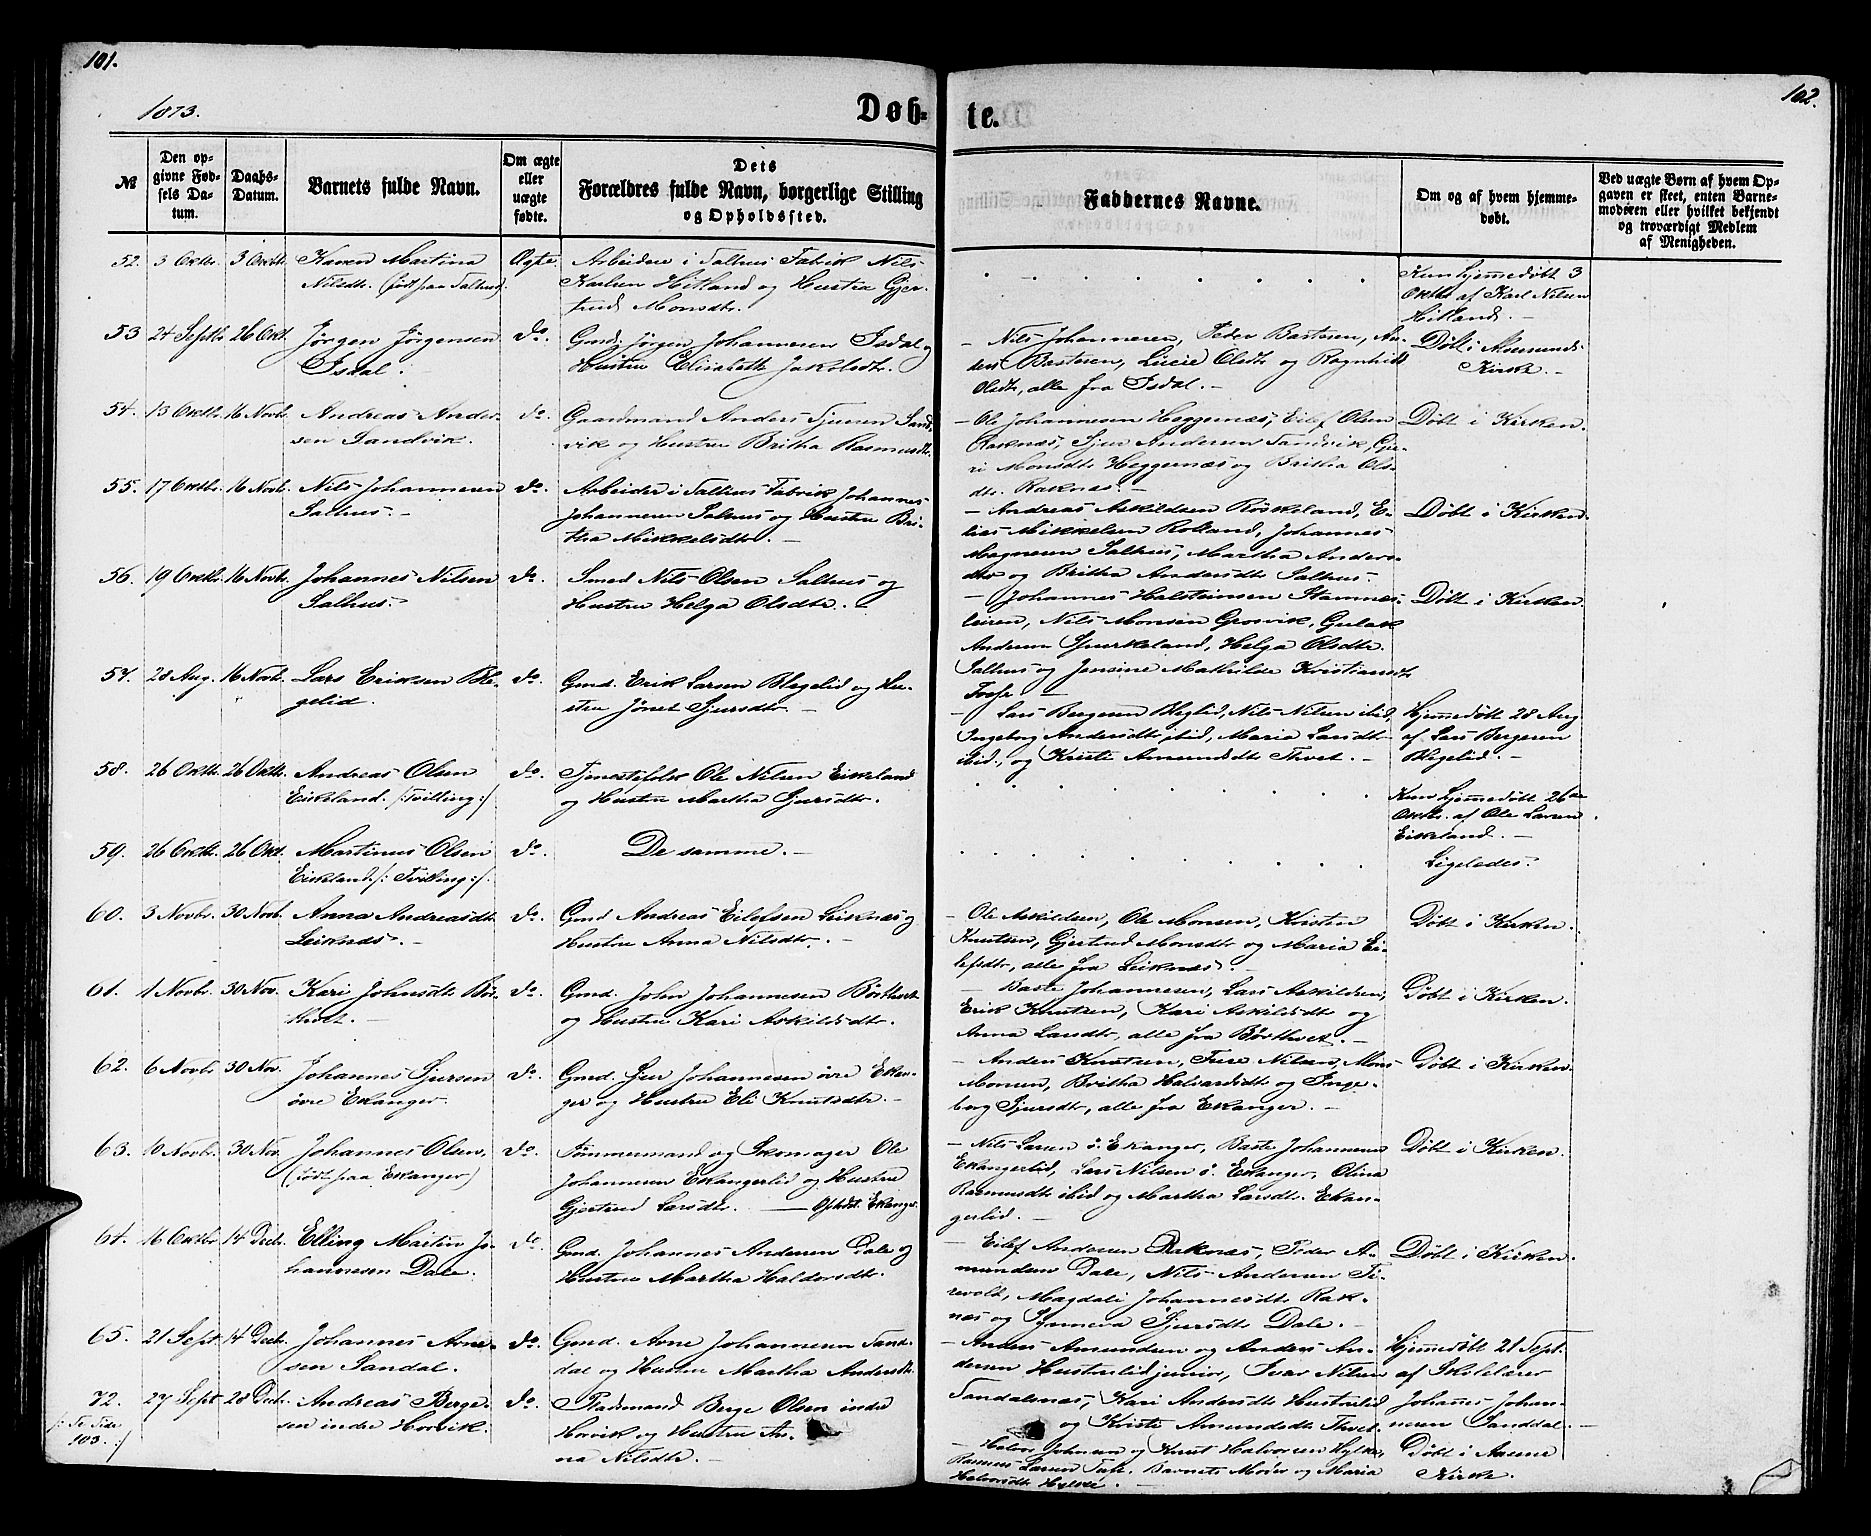 101.
102.
1873.
Døb-
te.
№
Den op-
givne Fød-
sels Da-
tum.
Daabs-
Datum.
Barnets fulde Navn.
Om ægte
eller
uægte
fødte.
Dets
Forældres fulde Navn, borgerlige Stilling
og Opholdssted.
Faddernes Navne.
Om og af hvem hjemme-
døbt.
Ved uægte Børn af hvem Op-
gaven er skeet, enten Barne-
moderen eller hvilket bekjendt
og troværdigt Medlem
af Menigheden.
52. 3 Oktbr. 3 Oktbr. Karen Martina
Nilsdtr. (født paa Salhus).
Ægte.
Arbeider i Salhus Fabrik Nils
Karlsen Hitland og Hustru Gjer-
trud Monsdtr.
Kun hjemmedøbt 3
Oktbr af Karl Nilsen
Hitland.
53 24 Septbr 26 Okt. Jørgen Jørgensen
Isdal.
do.
Gmd. Jørgen Johannesen Isdal og
Hustru Elisabeth Jakobsdtr.
Nils Johannesen, Peder Bastesen, An-
ders Bastesen, Lucie Olsdtr og Ragnhild
Olsdtr, alle fra Isdal.
Døbt i Alversunds
Kirke.
54. 13 Oktbr. 16 Novbr. Andreas Ander-
sen Sandvik.
do.
Gaardmand Anders Sjursen Sand-
vik og Hustru Britha Rasmusdtr.
Ole Johannesen Heggernæs, Eilef Olsen
Raknæs, Sjur Andersen Sandvik, Gju-
ri Monsdtr Heggernæs og Britha Ols-
dtr. Raknæs.
Døbt i Kirken.
55. 17 Oktbr. 16 Novb. Nils Johannesen
Salhus.
do.
Arbeider i Salhus Fabrik Johannes
Johannesen Salhus og Hustru Bri-
tha Mikkelsdtr.
Andreas Askildsen Røskeland, E-
lias Mikkelsen Rolland, Johannes
Magnesen Salhus, Martha Anders-
dtr og Britha Andersdtr Salhus.
Døbt i Kirken.
56. 19 Oktbr. 16 Novbr. Johannes Nilsen
Salhus.
do.
Smed Nils Olsen Salhus og
Hustru Helga Olsdtr.
Johannes Halsteinsen Stamnes-
leiren, Nils Monsen Grosvik, Gulak
Andersen Spurkeland, Helga Olsdtr.
Salhus og Jensine Mathilde Kristiansdtr
Fosse
Døbt i Kirken.
57. 28 Aug. 16 Novb. Lars Eriksen Ble-
gelid.
do.
Gmd. Erik Larsen Blegelid og Hu-
stru Jønet Sjursdtr.
Lars Bergesen Bleglid, Nils Nilsen ibid,
Ingeborg Andersdtr ibid, Maria Larsdtr
ibid., og Kristi Amundsdtr Thvet.
Hjemmedøbt 28 Aug
af Lars Bergesen
Blegelid.
58. 26 Oktb. 26 Oktb. Andreas Olsen
Eikeland. /:Tvilling:/
do.
Tjenestefolk Ole Nilsen Eikeland
og Hustru Martha Sjursdtr.
Kun hjemmedøbt 26de
Oktbr. af Ole Larsen
Eikeland.
59. 26 Oktb. 26 Okt. Martinus Olsen
Eikeland /: Tvilling :/.
do.
De samme.
Ligeledes.
60. 3 Novbr. 30 Novb. Anna Andreasdtr
Leiknæs.
do.
Gmd Andreas Eilefsen Leiknæs og
Hustru Anna Nilsdtr.
Ole Askildsen, Ole Monsen, Kristen
Knutsen, Gjertrud Monsdtr og Maria Ei-
lefsdtr, alle fra Leiknæs.
Døbt i Kirken.
61. 1 Novbr. 30 Nov. Kari Johnsdtr Bør-
thvet.
do.
Gmd. John Johannesen Børthvet
og Hustru Kari Askildsdtr.
Baste Johannesen, Lars Askildsen,
Erik Knutsen, Kari Askildsdtr og
Anna Larsdtr, alle fra Børthvet.
Døbt i Kirken.
62. 6 Novbr 30 Nov. Johannes Sjursen
øvre Ekanger.
do.
Gmd. Sjur Johannesen øvre Ekan-
ger og Hustru Eli Knutsdtr.
Anders Knutsen, Ture Nilsen, Mons
Monsen, Britha Halvardsdtr og Inge-
borg Sjursdtr, alle fra Ekanger.
Døbt i Kirken.
63. 10 Novbr. 30 Nov. Johannes Olsen.
(født paa Ekanger)
do.
Tømmermand og Skomager Ole
Johannesen Ekangerlid og Hustru
Gjertrud Larsdtr. — Opholdt. Ekanger.
Nils Larsen ø. Ekanger, Baste Johannesen
Ekangerlid, Lars Nilsen ø. Ekanger, Olina
Rasmusdtr ibid og Martha Larsdtr. Ekan-
gerlid.
Døbt i Kirken.
64. 16 Oktbr 14 Decb. Elling Martin Jo-
hannesen Dale.
do.
Gmd. Johannes Andersen Dale og
Hustru Martha Haldorsdtr.
Eilef Andersen Raknæs, Peder A-
mundsen Dale, Nils Andersen Ti-
revolt, Magdali Johannesdtr Rak-
næs og Synneva Sjursdtr Dale.
Døbt i Kirken.
65. 21 Sept 14 Decb. Johannes Arne-
sen Sandal.
do.
Gmd. Arne Johannesen Sand-
dal og Hustru Martha Andersdtr.
Anders Amundsen og Anders An-
dersen Hustrulid junior, Ivar Nilsen
Sandalsnæs, Kari Andersdtr Hustrulid
og Kristi Amundsdtr Thvet.
Hjemmedøbt 21 Sept.
af Skolelærer
Johans Johan-
nesen Sanddal.
72.
/: Se Side
103. :/
27 Sept 28 Decb. Andreas Berge-
sen indre Horvik.
do.
Pladsmand Berge Olsen indre
Horvik og Hustru An-
na Nilsdtr.
Halvor Johnsen og Knut Halvorsen Hylke,
Rasmus Larsen Tuft. Barnets Moder og Maria
Halvorsdtr Hylke.
Døbt i Aasene
Kirke.